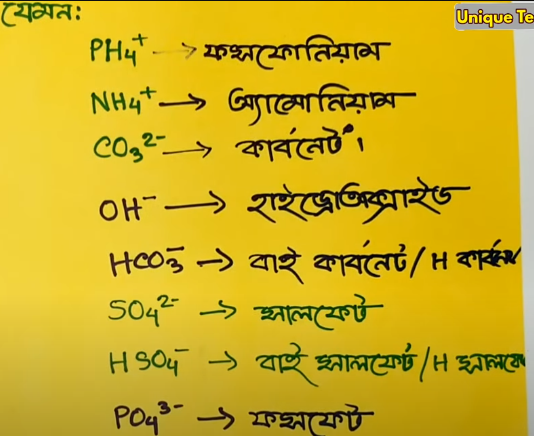 যেমন:
Unique Te
PH₄⁺ → ফসফোনিয়াম
NH₄⁺ → অ্যামোনিয়াম
CO₃²⁻ → কার্বনেট।
OH⁻ → হাইড্রোঅক্সাইড
HCO₃⁻ → বাই কার্বনেট / H কার্বনে
SO₄²⁻ → সালফেট
HSO₄⁻ → বাই সালফেট / H সালফে
PO₄³⁻ → ফসফেট